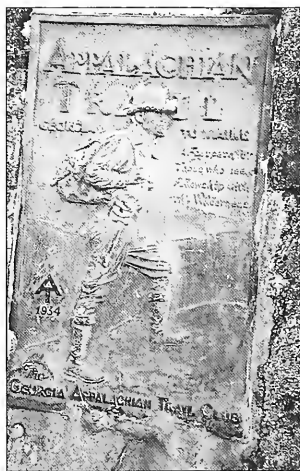 APPALACHIAN
TRAIL
GEORGIA
A Footpath for
Those who seek
Fellowship with
the Wilderness
1934
The
GEORGIA APPALACHIAN TRAIL CLUB